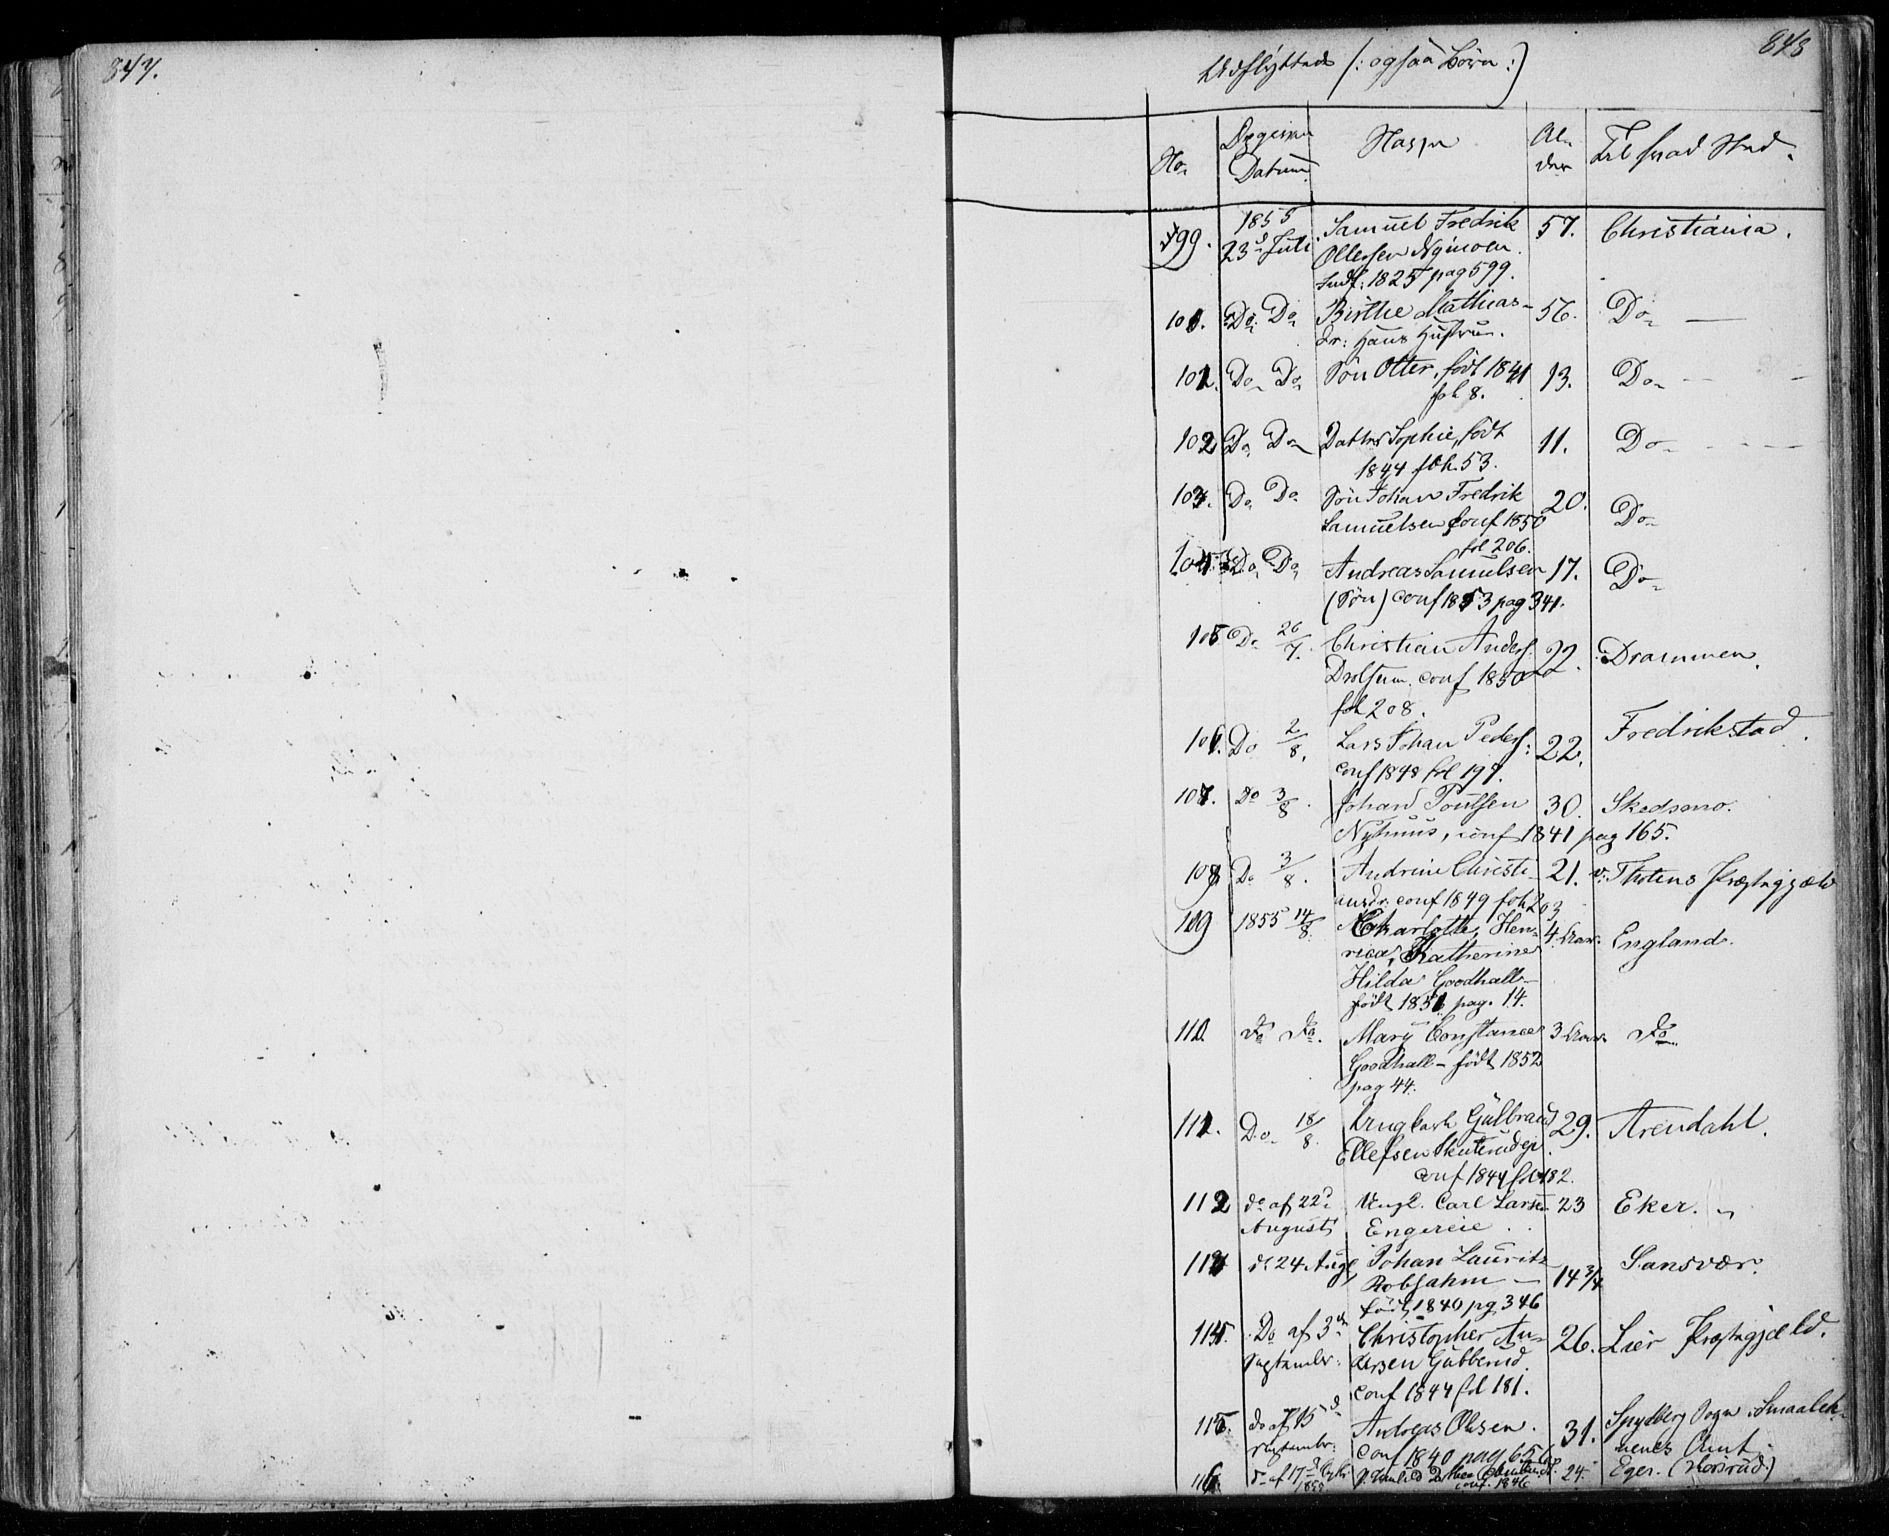 847.
848
Udflyttede /: ogsaa Börn :/
No. Datum Al- der Til hvad Sted.
99. 1855 23d Juli Samuel Fredrik 57. Christiania.
Ollessen
Indf: 1825 pag 599.
101. Do Do Birthe Mathias- 56. Do
dr: Hans Hustru.
101. Do Do Sön Otter, födt 1841 13. Do
fol 8.
102 Do Do Datter Sophie, födt 11. Do
1844 fol. 53.
103. Do Do Sön Johan Fredrik 20. Do
Samuelsen conf 1850
fol 206.
104. Do Do Andreas Samuelsen 17. Do
(Sön) conf 1853 pag 341.
105 Do 26/7. Christian Anders: 22. Drammen.
conf 1850
fol 208.
106. Do 2/8. Lars Johan Peders: 22. Fredrikstad.
conf 1848 fol 197.
107. Do 3/8. Johan Poulsen 30. Skedsmo.
Nyhuus, conf 1841 pag 165.
108 Do 3/8. Andrine Christi- 21. Thotens Præstegjæld
ansdr: conf 1849 fol 203
109 1855 14/8. Charlotte, Hen- 4 Aar. England.
rica, Katherine
Hilda Goodhall-
födt 1851 pag. 14.
110. do do. Mary Constance 3 Aar do
Goodhall - födt 1852
pag 44.
111. Do 18/8. Ungkarl Gulbrand 29. Arendahl.
Ellefsen Skuterudeje
conf 1844 fol 182.
112 do af 22d Ungk. Carl Larsen 23 Eker.
August Engereie
113 do 24 Aug Johan Lauritz 14 3/4 Sansvær.
Robsahm
födt 1840 pg 346
114. Do af 3d Christopher An- 26. Lier Præstegjæld.
Septembr: dersen Gubberud.
conf 1844 fol 181.
115. do af 15d Andreas Olsen. 31. Spydberg Sogn i Smaaleh-
Septembr: conf 1840 pag 656 nenes Amt.
116. do af 17d Septr 1855 24. Eger. (Horsrud.)
conf. 1846